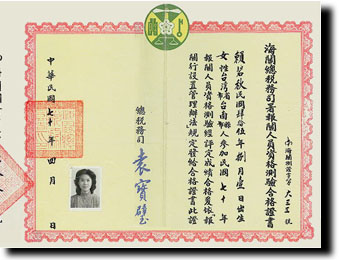 海關總稅務司署報關人員資格測驗合格證書
賴碧秋民國肆拾伍年捌月壹日出生
女性台灣省台南縣人參加民國七十年
報關人員資格測驗經評定成績合格爰依報
關行設置管理辦法規定發給合格證書此證
總稅務司
袁寶璧
中華民國七十年四月日